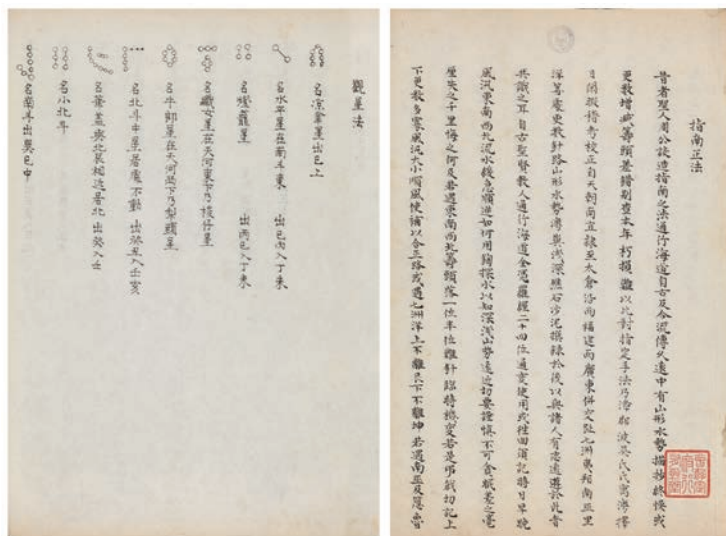 指南正法
昔者聖人周公設造指南之法通行海道自古及今流傳久遠中有山形水勢描抄終悞或
更数增减籌頭差錯別查本年朽損難以比對指定手法乃漳郡波吳氏氏寓澳擇
日閑擬稽考校正自天朝南直隸至太倉沿而福建而廣東併交趾七洲夷邦南巫里
洋等處更数針路山形水勢澳嶼淺深礁石沙泥撰錄於後以與諸人有志遠遊於此者
共識之耳自古聖賢教人通行海道全憑羅經二十四位通變使用或往回須記時日早晚
風汛東南西北流水緩急順逆如何用鈎探水以知深淺山勢遠近切要謹慎不可貪眠差之毫
厘失之千里悔之何及若遇東南西北籌頭落一位半位難針臨時機變若是吊戧切記上
下更数多寡風汛大小順風使補以合正路或遇七洲洋上不離艮下不離坤若遇南巫及忽魯
觀星法
名涼傘星出巳上
名水平星在南斗東 出巳丙入丁未
名燈籠星 出丙巳入丁未
名織女星在天河東下乃梭仔星
名牛郎星在天河西下乃犁頭星
名北斗中星居處不動 出癸丑入壬亥
名華蓋與北辰相近居北 出癸入壬
名小北斗
名南斗出巽巳中